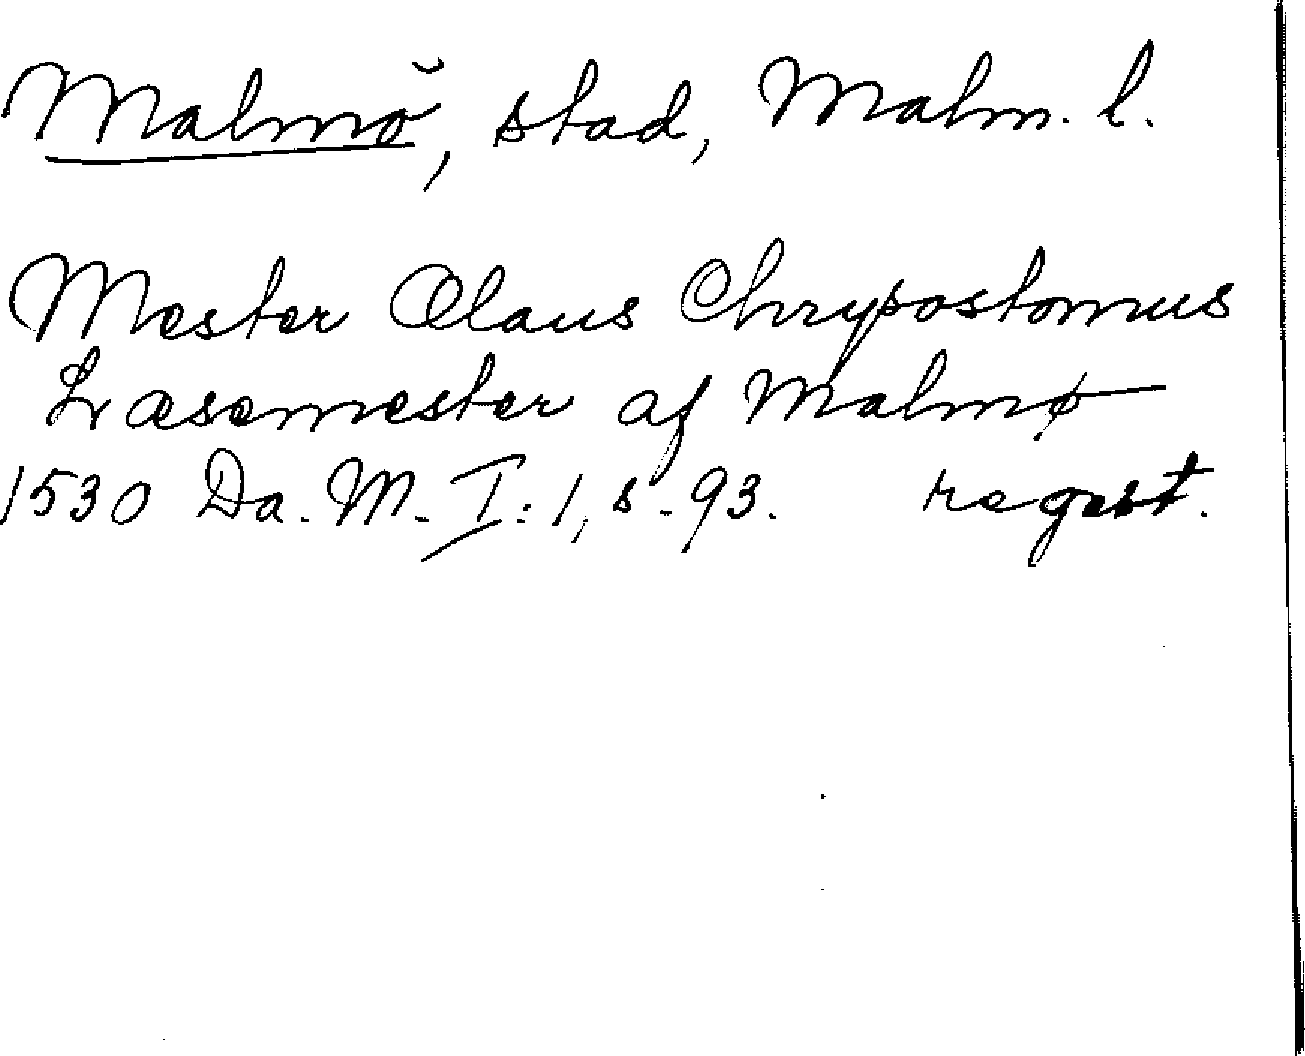 Malmö, stad, Malm. l.
Mester Olaus Chrypostomus
Læsemester af Malmø
1530 Da. M. I: 1, s. 93. regest.